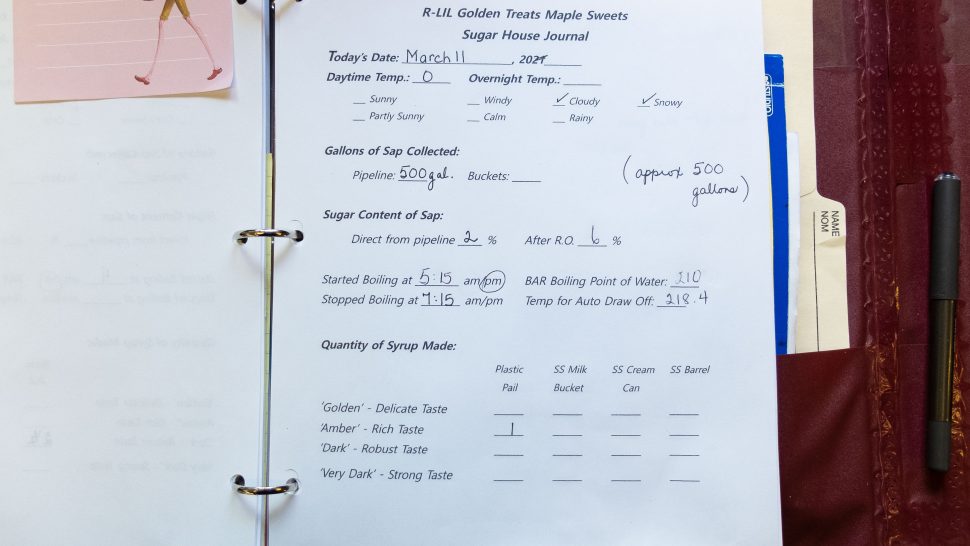 R-LIL Golden Treats Maple Sweets
Sugar House Journal
Today's Date: March 11, 2021
Daytime Temp.: 0 Overnight Temp.:
__ Sunny __ Windy ✓ Cloudy ✓ Snowy
__ Partly Sunny __ Calm __ Rainy
Gallons of Sap Collected:
Pipeline: 500 gal. Buckets: ____ (approx 500
gallons)
Sugar Content of Sap:
Direct from pipeline 2 % After R.O. 6 %
Started Boiling at 5:15 am/pm BAR Boiling Point of Water: 210
Stopped Boiling at 7:15 am/pm Temp for Auto Draw Off: 218.4
Quantity of Syrup Made:
Plastic SS Milk SS Cream SS Barrel
Pail Bucket Can
'Golden' - Delicate Taste
'Amber' - Rich Taste 1
'Dark' - Robust Taste
'Very Dark' - Strong Taste
NAME
NOM